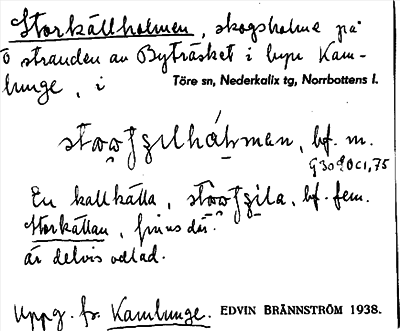 Storkällholmen, skogsholme på
Ö stranden av Byträsket i byn Kam-
lunge, i Töre sn, Nederkalix tg, Norrbottens l.
bf. m.
G 30 9 OC1,75
En kallkälla, bf. fem.
Storkällan, finns där.
är delvis odlad.
Uppg. fr. Kamlunge. EDVIN BRÄNNSTRÖM 1938.